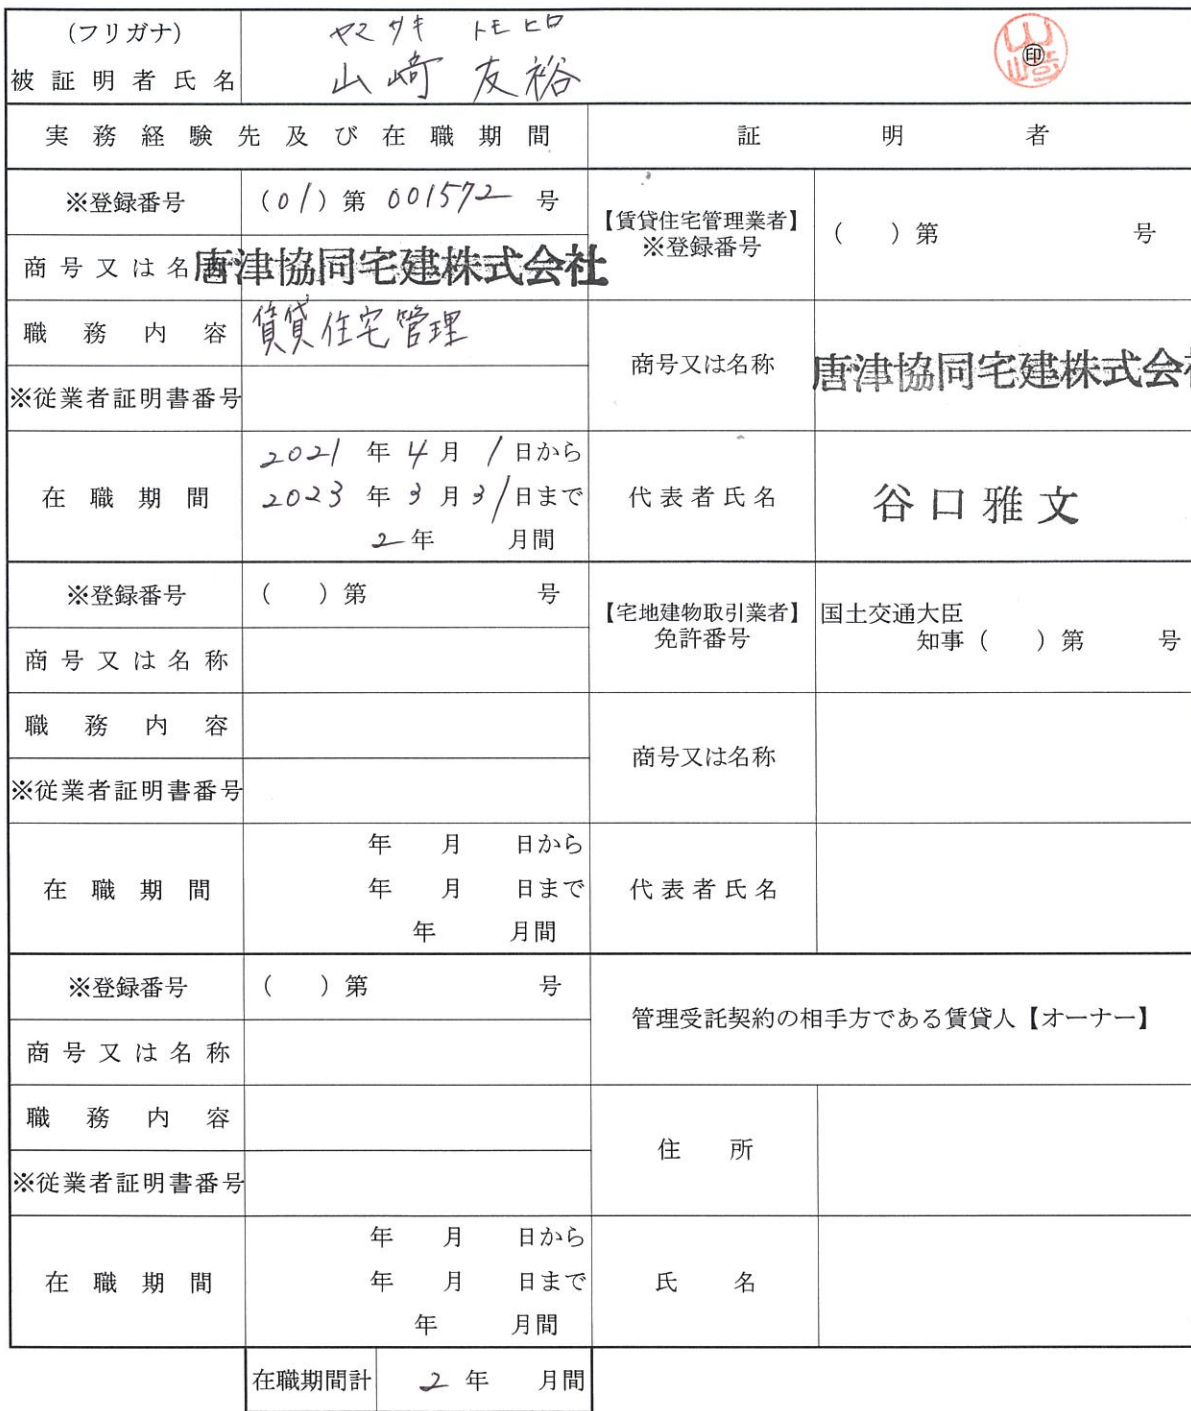 (フリガナ) ヤマサキ トモヒロ
被証明者氏名 山﨑 友裕 ㊞
実務経験先及び在職期間 証明者
※登録番号 (01)第 001572 号
商号又は名称 唐津協同宅建株式会社
職務内容 賃貸住宅管理
※従業者証明書番号
在職期間 2021 年 4 月 1 日から
2023 年 3 月 31 日まで
2 年 月間
【賃貸住宅管理業者】
※登録番号 ( )第 号
商号又は名称 唐津協同宅建株式会社
代表者氏名 谷口雅文
※登録番号 ( )第 号
商号又は名称
職務内容
※従業者証明書番号
在職期間 年 月 日から
年 月 日まで
年 月間
【宅地建物取引業者】 国土交通大臣
免許番号 知事( )第 号
商号又は名称
代表者氏名
※登録番号 ( )第 号
商号又は名称
職務内容
※従業者証明書番号
在職期間 年 月 日から
年 月 日まで
年 月間
管理受託契約の相手方である賃貸人【オーナー】
住所
氏名
在職期間計 2 年 月間